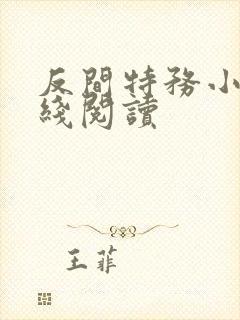 反間特務小
綫閱讀
王菲